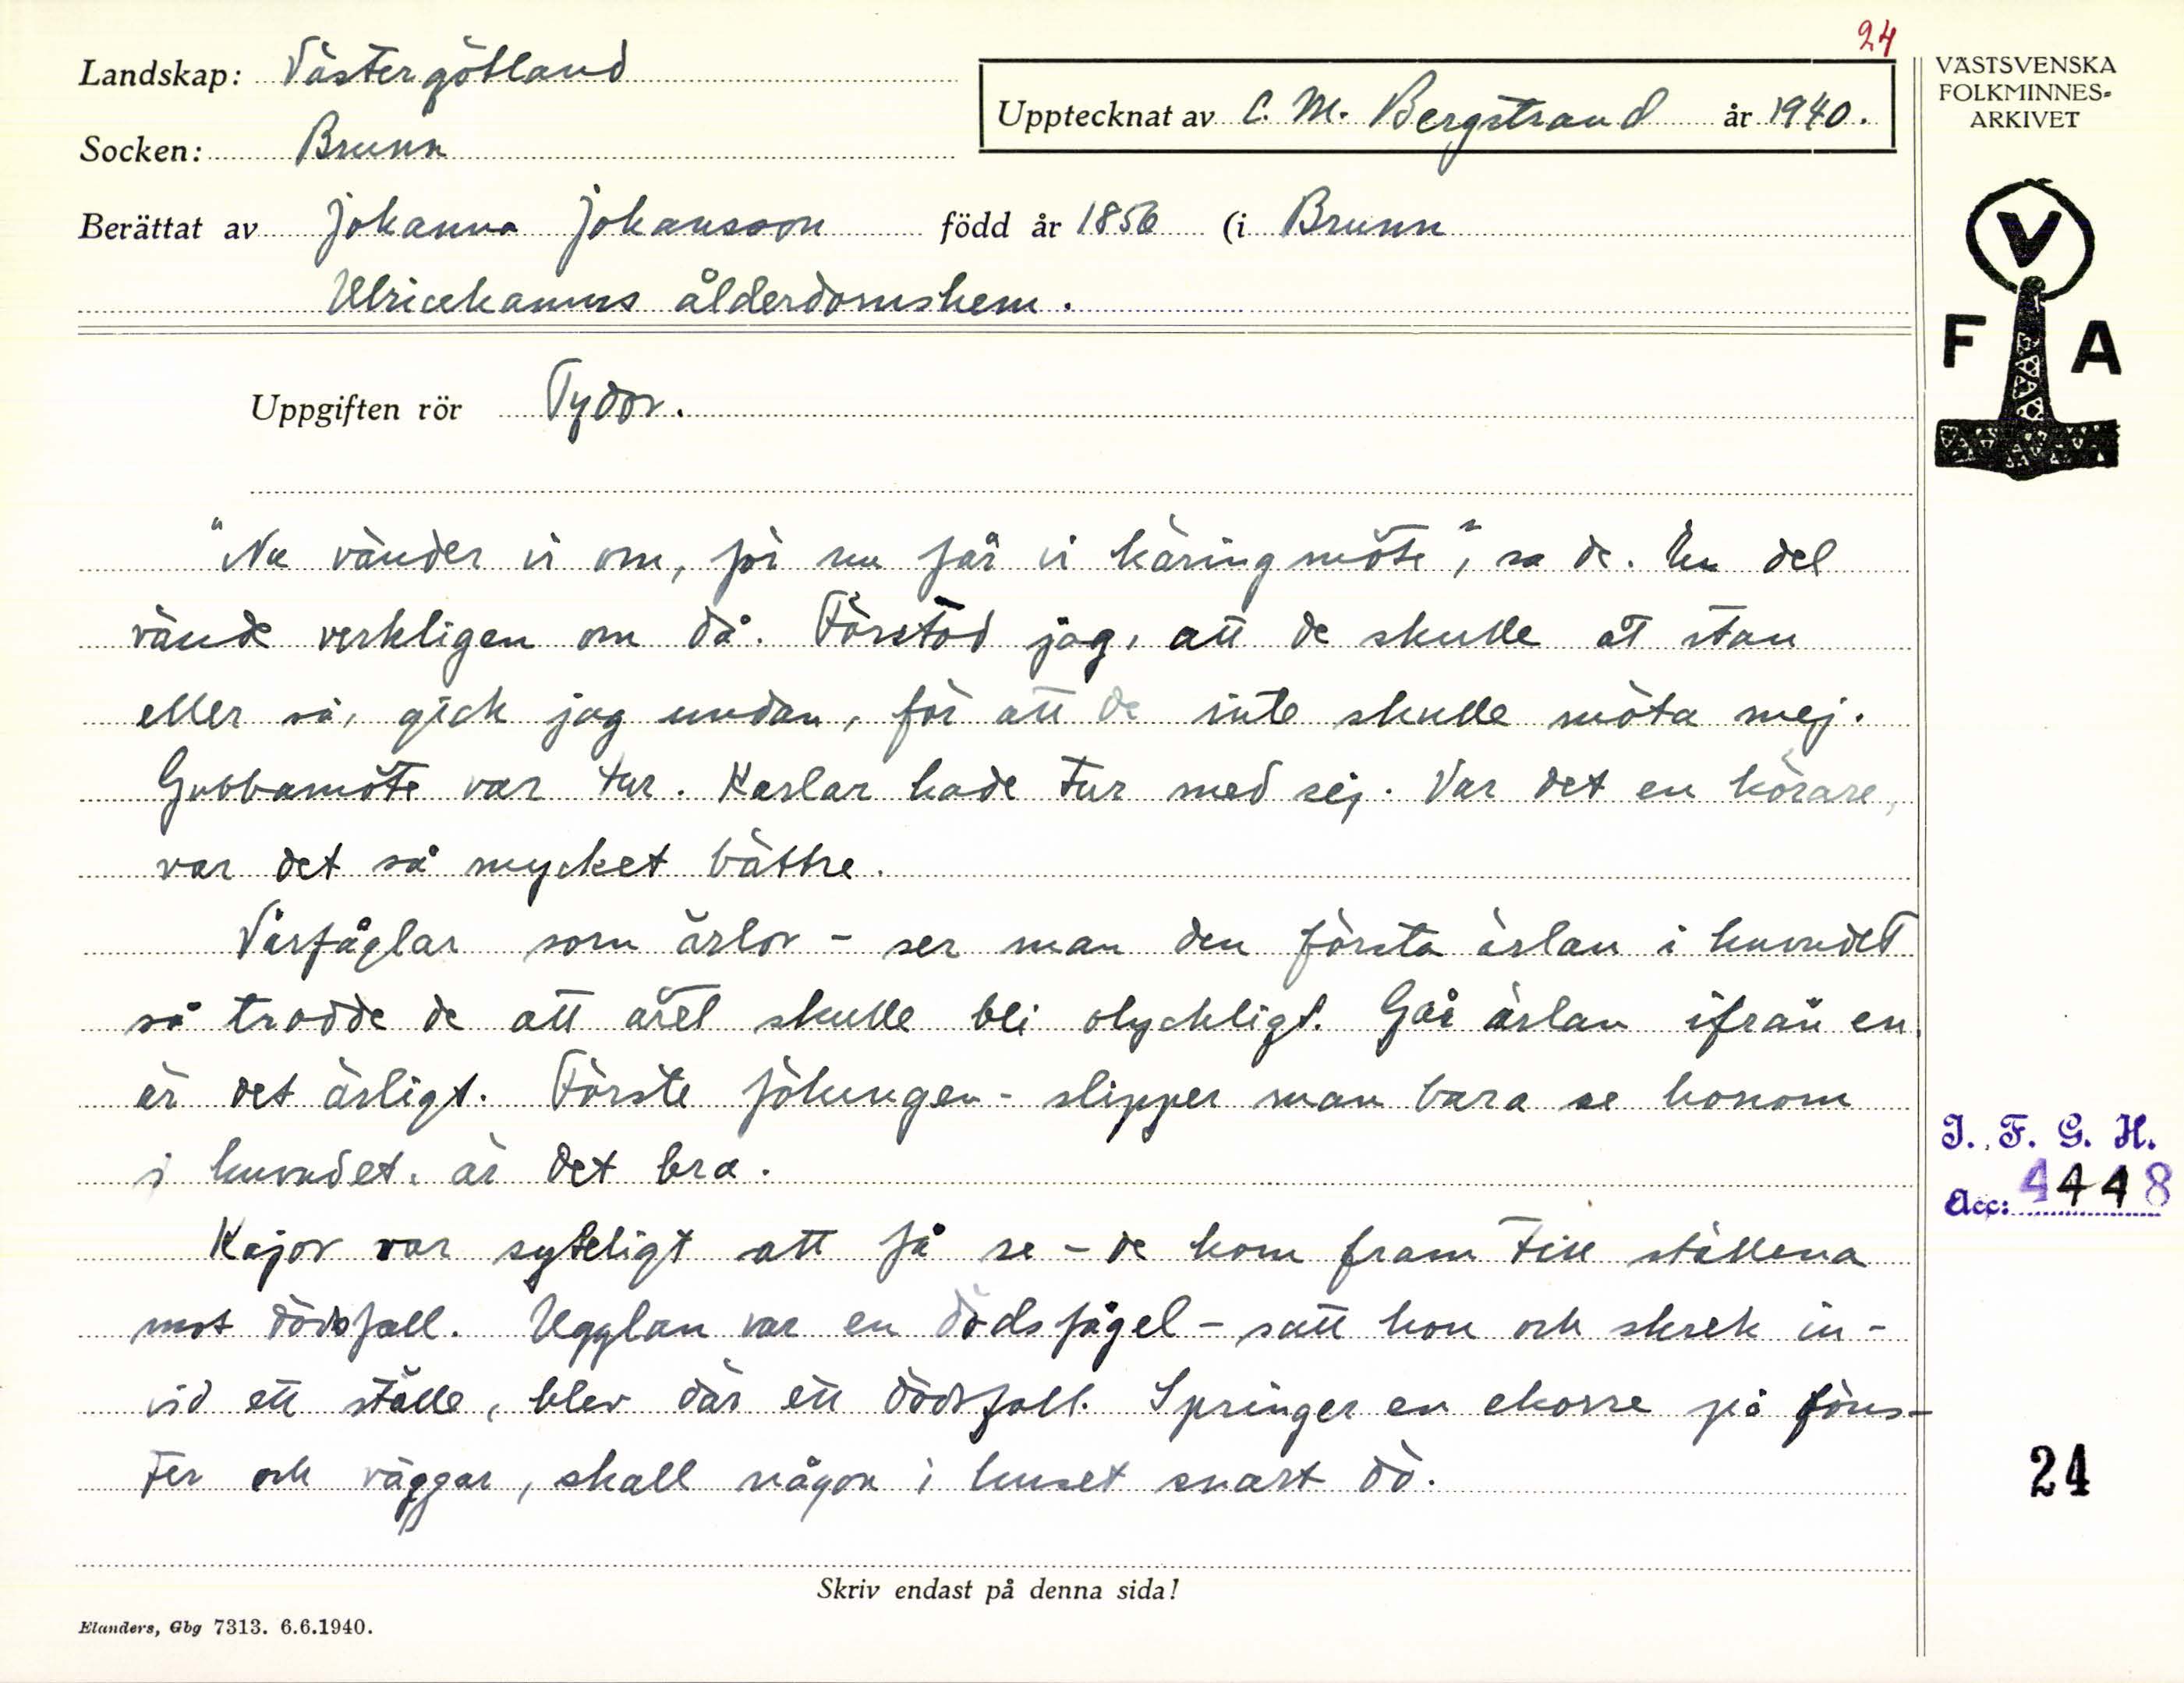 24
Landskap: Västergötland
Socken: Brunn
Upptecknat av C. M. Bergstrand år 1940.
Berättat av Johanna Johansson född år 1856 (i Brunn
Ulricehamns ålderdomshem.
Uppgiften rör Tydor.
"Nu vänder vi om, för nu får vi käringmöte", sa de. En del
vände verkligen om då. Förstod jag, att de skulle åt stan
eller så, gick jag undan, för att de inte skulle möta mej.
Gubbamöte var tur. Karlar hade tur med sej. Var det en körare,
var det så mycket bättre.
Vårfåglar som ärlor - ser man den första ärlan i huvudet
så trodde de att året skulle bli olyckligt. Går ärlan ifrån en,
är det ärligt. Förste fölungen - slipper man bara se honom
i huvudet, är det bra.
Kajor var syteligt att få se - de kom fram till ställena
mot dödsfall. Ugglan var en dödsfågel - satt hon och skrek in-
vid ett ställe, blev där ett dödsfall. Springer en ekorre på föns-
ter och väggar, skall någon i huset snart dö.
Skriv endast på denna sida!
Elanders, Gbg 7313. 6.6.1940.
VÄSTSVENSKA
FOLKMINNES-
ARKIVET
V
F A
I. F. G. H.
Acc: 4448
24